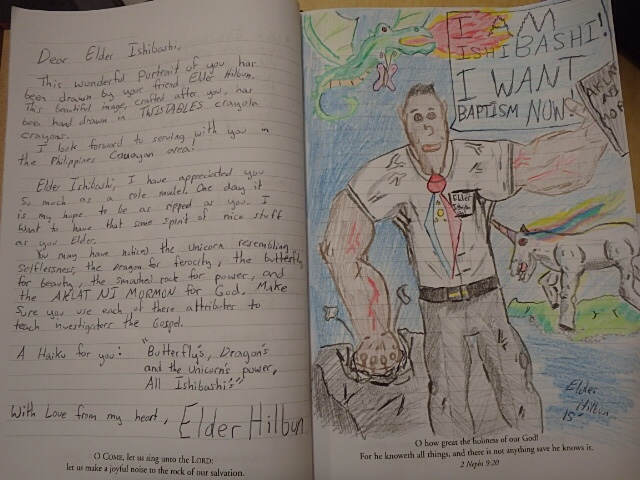 Dear Elder Ishibashi,
This wonderful Purtrait of you has
been drawn by your friend, Elder Hilbun.
This beautiful image, crafted after you, has
been hand drawn in TWISTABLES crayola
crayons.
I look forward to serving with you in
the Philippines Cauayan area.
Elder Ishibashi, I have appreciated you
so much as a role model. One day it
is my hope to be as ripped as you. I
want to have that same spirit of nice stuff
as you Elder.
You may have noticed the Unicorn resembling
selflessness, the dragon for ferocity, the butterfly
for beauty, the smashed rock for power, and
the AKLAT NI MORMON for God. Make
sure you use each of these attributes to
teach investigators the Gospel.
A Haiku for you: "Butterfly's, Dragon's
and the unicorn's power,
All Ishibashi's"
With Love from my heart, Elder Hilbun
O COME, let us sing unto the LORD:
let us make a joyful noise to the rock of our salvation.
I AM
ISHIBASHI!
I WANT
BAPTISM NOW!
AKLAT
NI
MOR
Elder
Elder
Hilbun
15
O how great the holiness of our God!
For he knoweth all things, and there is not anything save he knows it.
2 Nephi 9:20